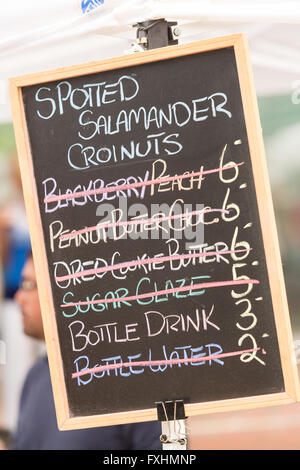 SPOTTED
SALAMANDER
CROINUTS
BLACKBERRY PEACH 6
PEANUT BUTTER CHOC 6
OREO COOKIE BUTTER 6
SUGAR GLAZE 5
BOTTLE DRINK 3
BOTTLE WATER 2
alamy
Image ID: FXHMNP
www.alamy.com